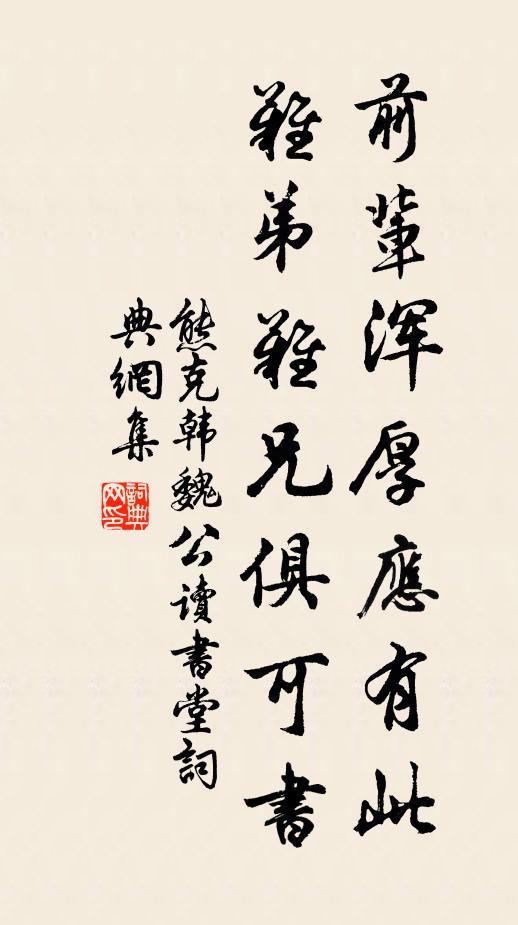 前輩渾厚應有此
難弟難兄俱可書
熊克韩魏公讀書堂詞
典網集
詞典网印